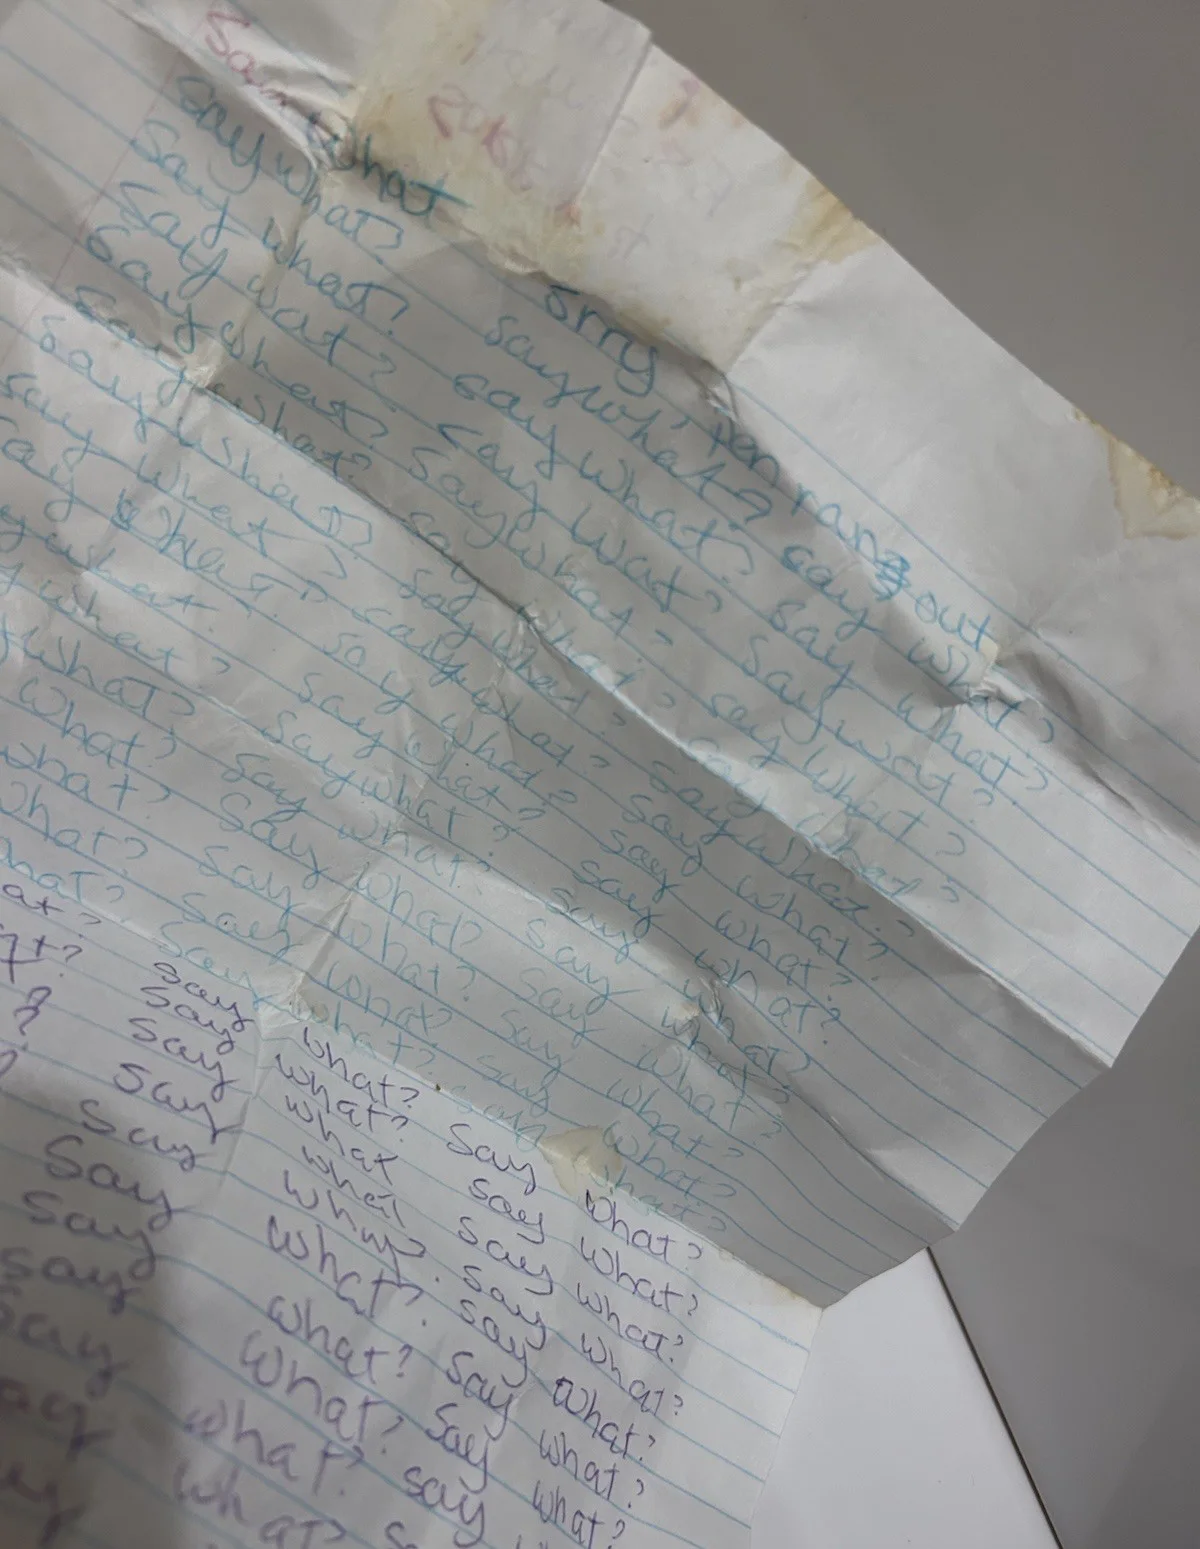 What Srry pen ran out
Say what? say what? say what?
Say what? say what? say what?
Say wat? say wat? say wat?
Say what? say what? say what?
say what? say what? say what?
Say what? say what? say what?
say what? say what? say what?
say what? say what? say what?
what? say what? say what?
what? say what? say wh
what? say what? say what?
what? say what? say what?
what? say what? say what?
what? say what? say what?
what? say what? say what?
say what? say what?
say what? say what?
say what say what?
say what say what?
say what? say what?
Say what? say what?
say what? say what?
say what? say what?
say what? say
what?